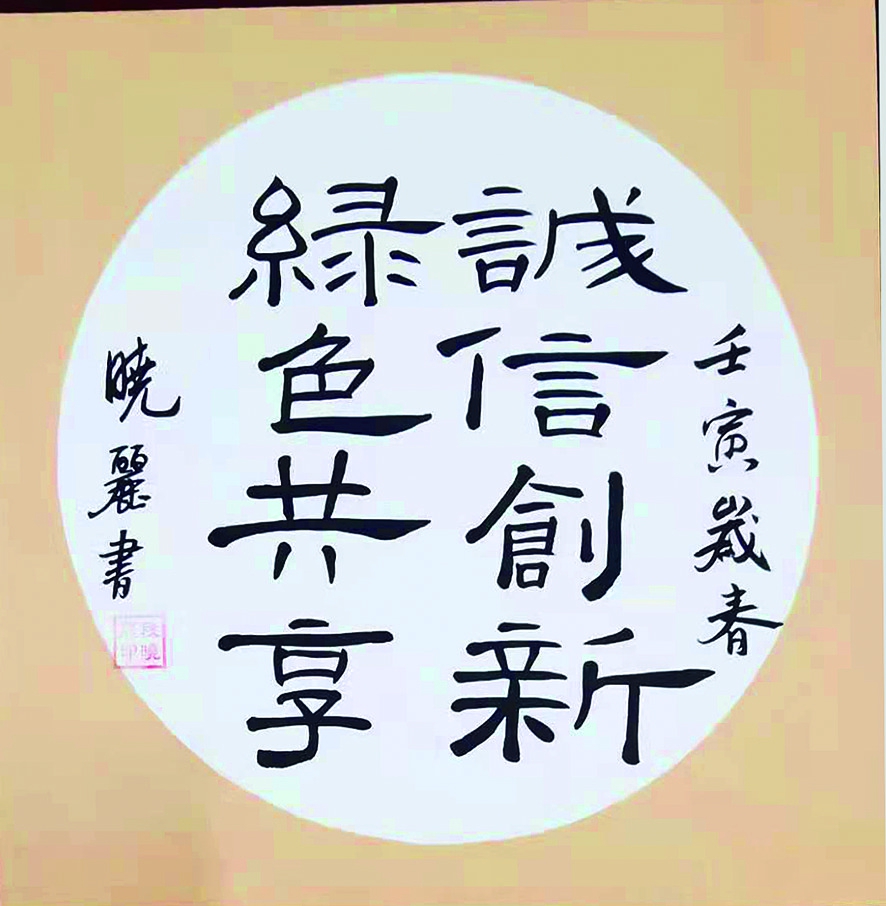 壬寅歲春
誠信創新
綠色共享
曉麗書